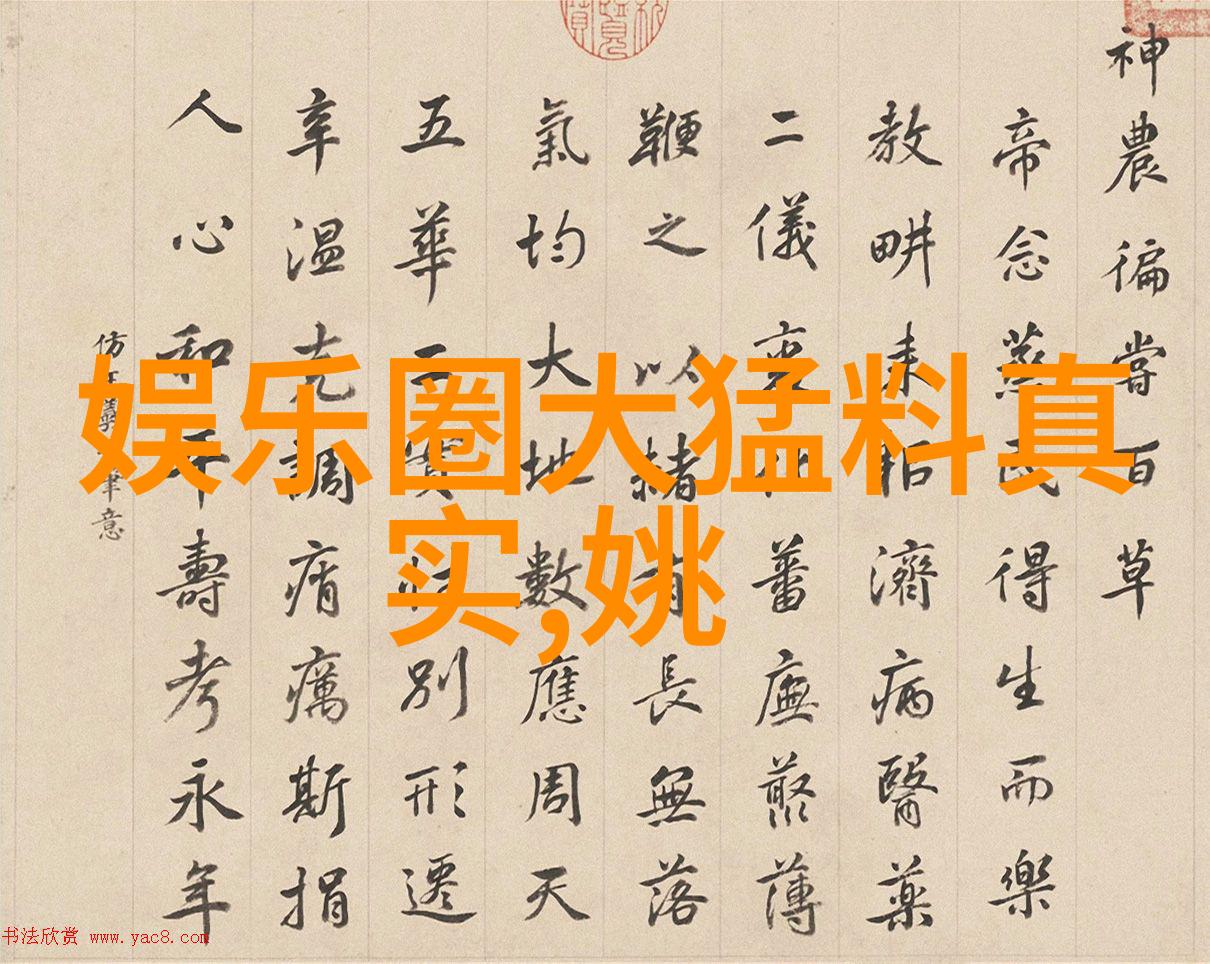 娱乐圈大猛料真
实,姚
神農徧嘗百草
帝念蒸民得生而樂
教畊耒耜濟病醫藥
二儀蕃廡藂薄
鞭之以赭有長無落
氣均大地數應周天
五華別形遷
辛温克調痟癘斯捐
人心和平壽考永年
仿王羲筆意
书法欣赏 www.yac8.com